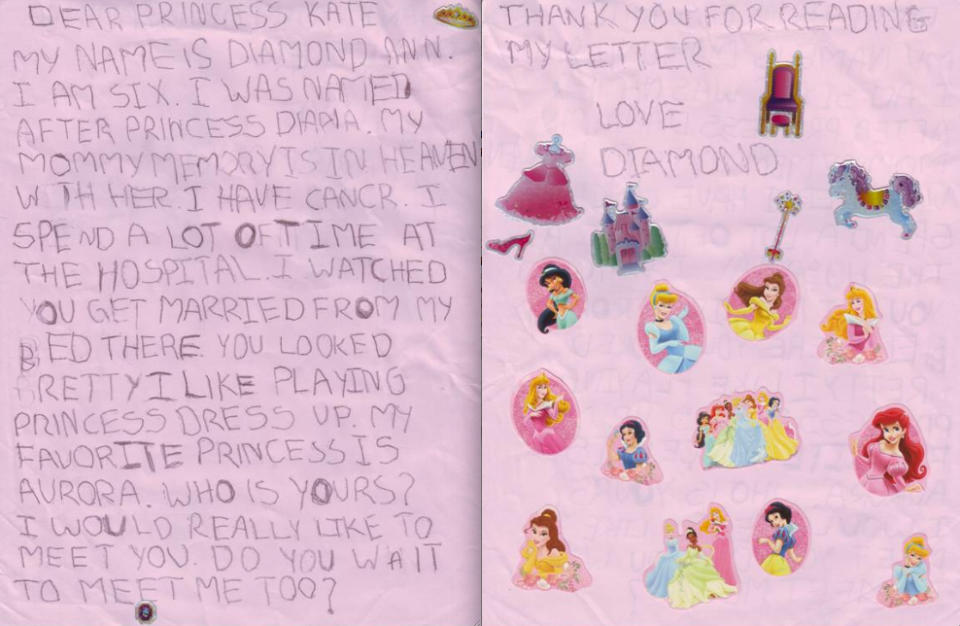 DEAR PRINCESS KATE
MY NAME IS DIAMOND ANN.
I AM SIX. I WAS NAMED
AFTER PRINCESS DIANA. MY
MOMMY MEMORY IS IN HEAVEN
WITH HER I HAVE CANCR. I
SPEND A LOT OF TIME AT
THE HOSPITAL. I WATCHED
YOU GET MARRIED FROM MY
BED THERE. YOU LOOKED
PRETTY I LIKE PLAYING
PRINCESS DRESS UP. MY
FAVORITE PRINCESS IS
AURORA. WHO IS YOURS?
I WOULD REALLY LIKE TO
MEET YOU. DO YOU WAIT
TO MEET ME TOO?
THANK YOU FOR READING
MY LETTER
LOVE
DIAMOND